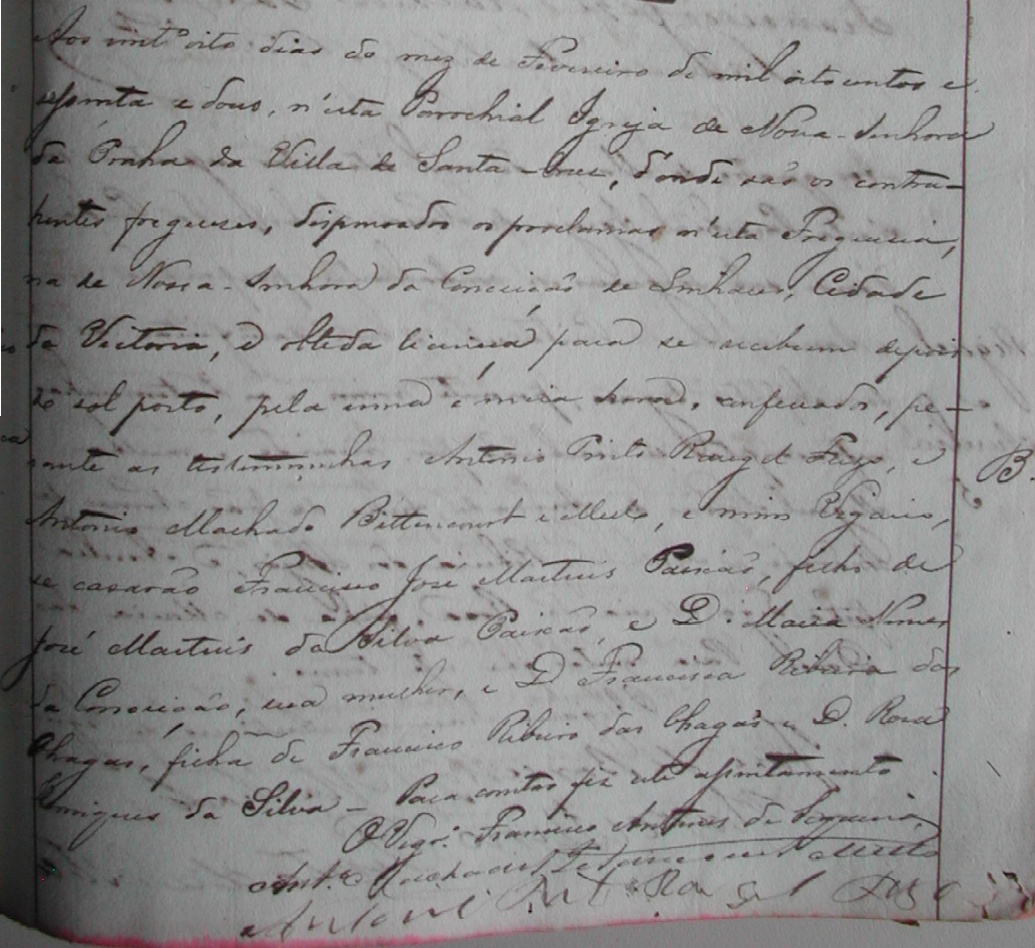 Aos vint'oito dias do mez de Fevereiro de mil oitocentos e
sessenta e dous, n'esta Parochial Igreja de Nossa Senhora
da Penha da Villa de Santa-Cruz, d'onde são os contra-
hentes freguezes, dispensados os proclamas n'esta Freguezia,
na de Nossa-Senhora da Conceição de Linhares, Cidade
da Victoria, e obtida licença para se receberem depois
do sol posto, pela uma e meia hora, confessados, pe-
rante as testemunhas Antonio Pinto Rangel Fugo, e
Antonio Machado Bittencourt e Mello, e mim Vigario,
B.
se casarão Francisco José Martins Paixão, filho de
José Martins da Silva Paixão, e D. Maria Nunes
da Conceição, sua mulher, e D. Francisca Ribeira das
Chagas, filha de Francisco Ribeiro das Chagas e D. Rosa
Henriques da Silva - Para constar fiz este assentamento
O Vigr.º Francisco Antunes de Sequeira
Ant.º Machado Bittencourt Mello
Antoni Rangel